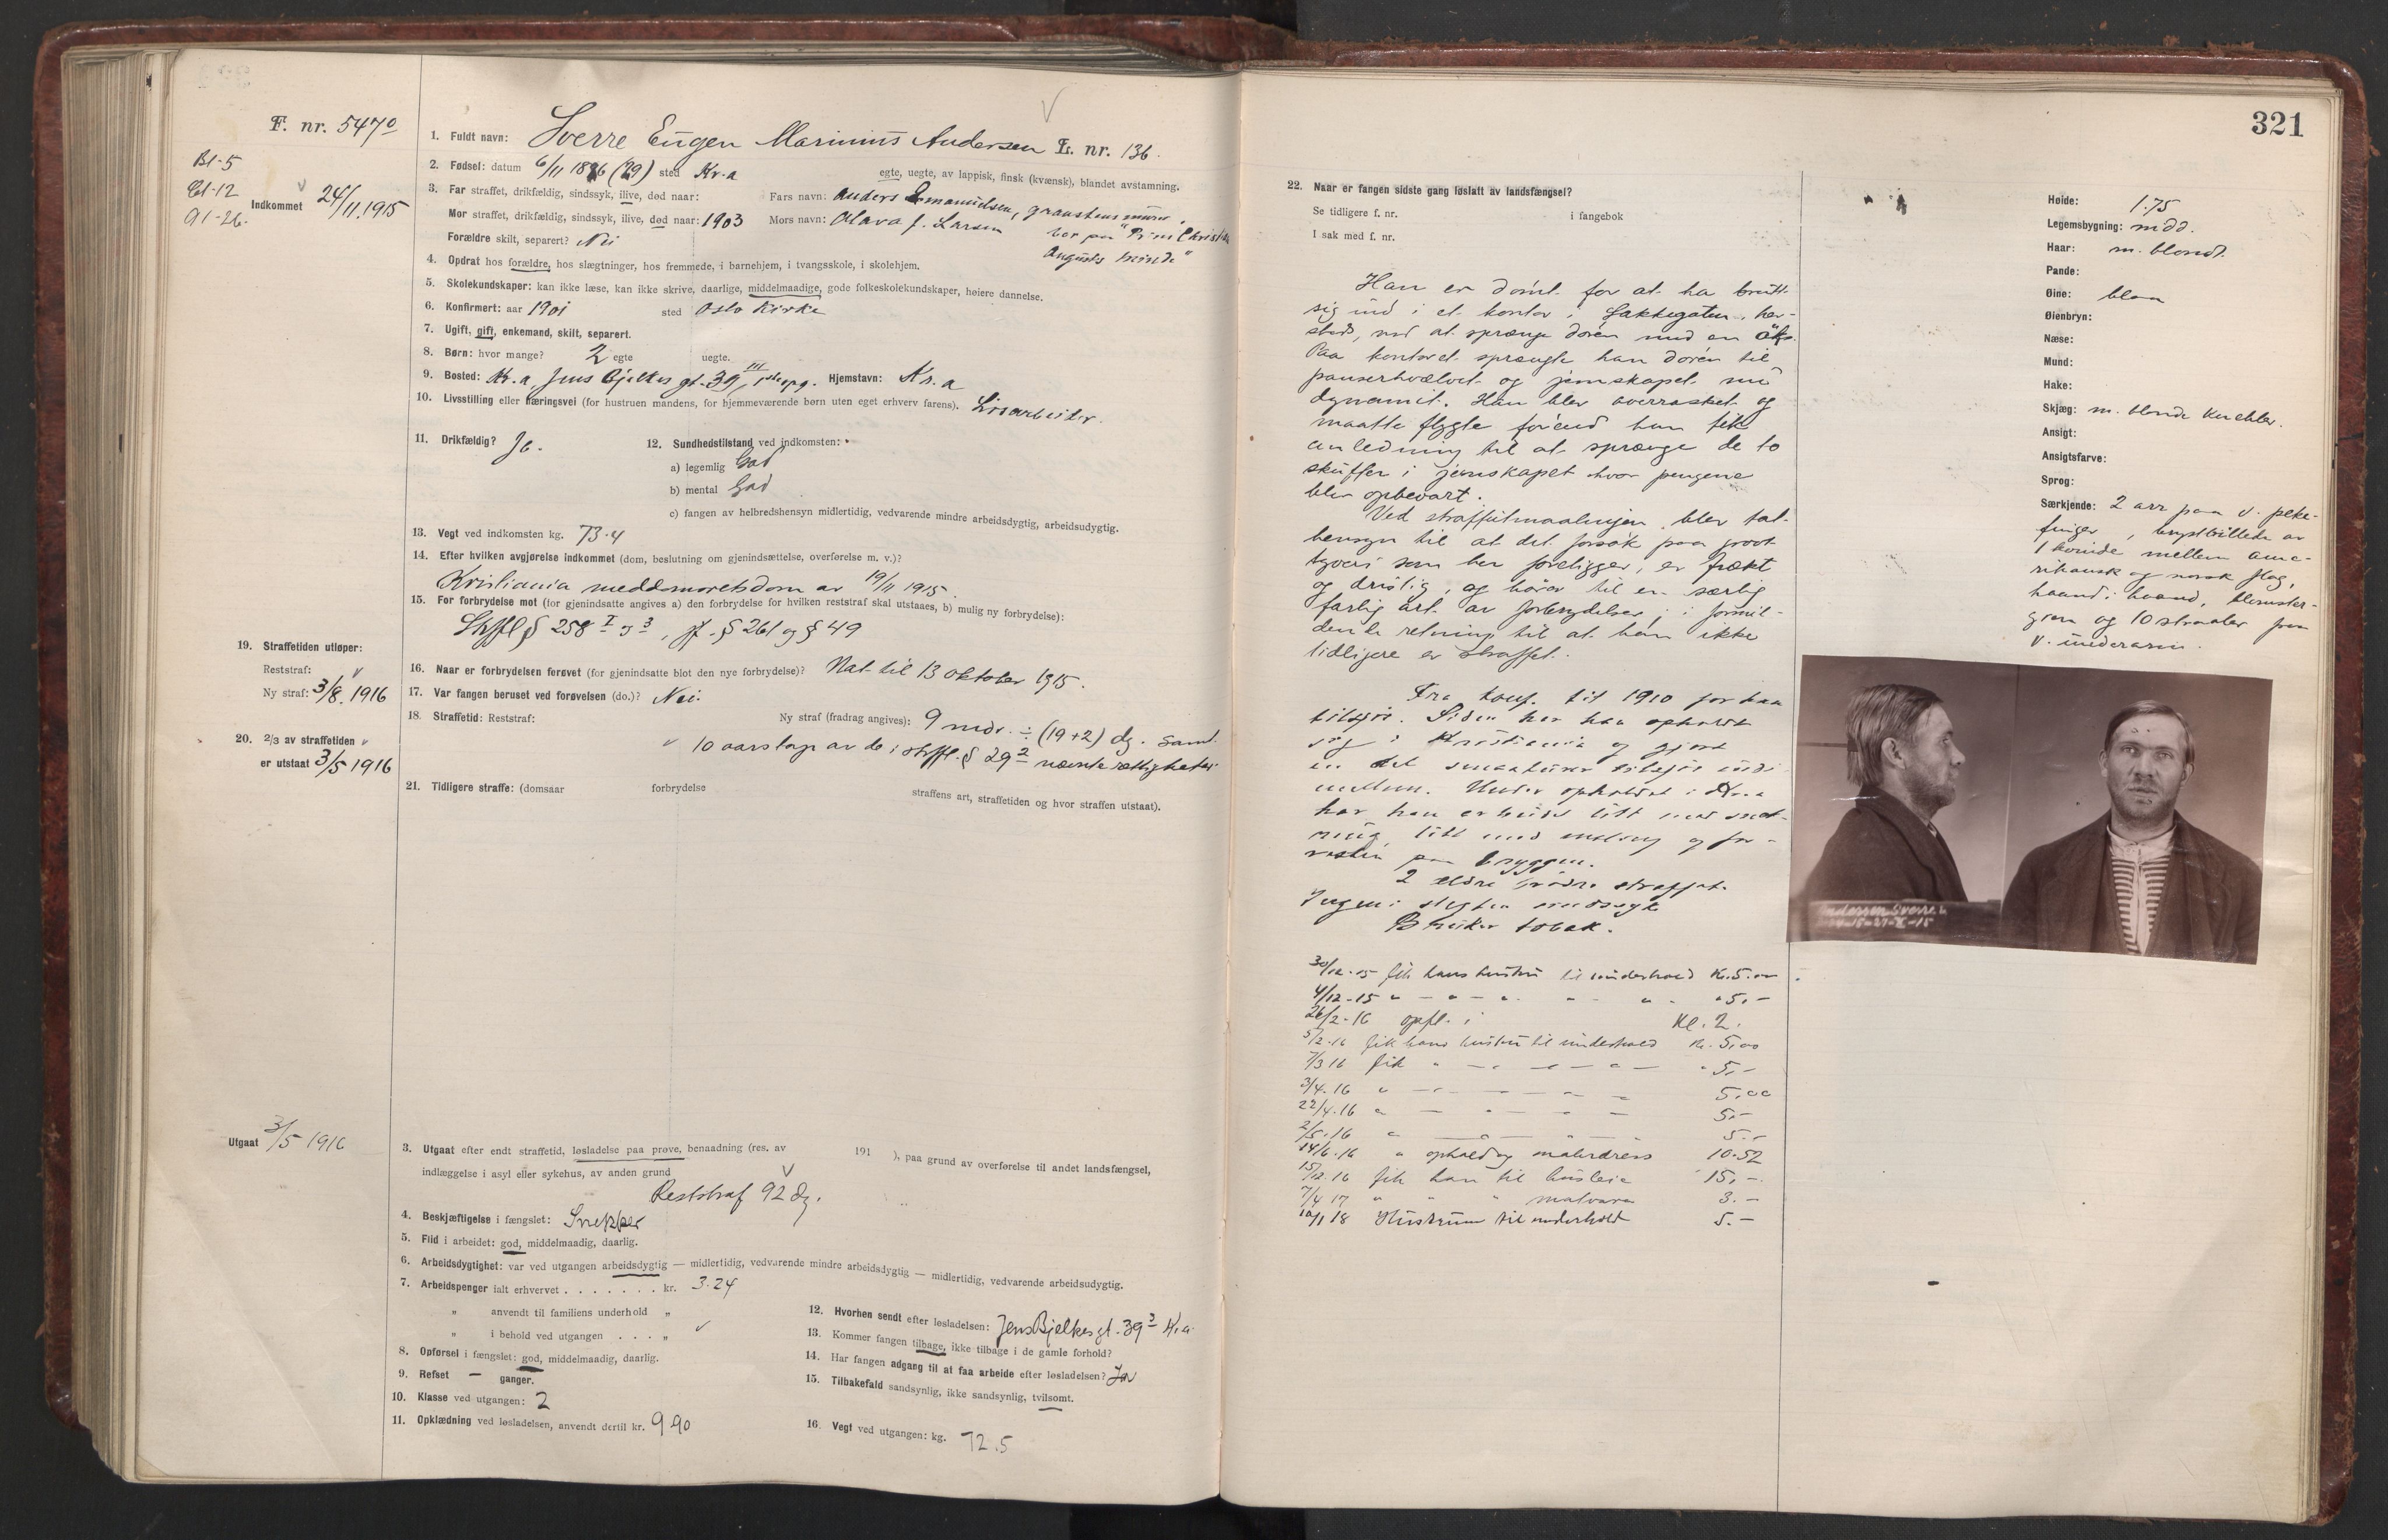 F. nr. 5470
Bl-5
Cl-12
Al-26.
Indkommet 24/11.1915
1. Fuldt navn: Sverre Eugen Marinius Andersen L. nr. 136.
2. Fødsel: datum 6/11 1886 (29) sted Kr.a
egte, uegte, av lappisk, finsk (kvænsk), blandet avstamning.
3. Far straffet, drikfældig, sindssyk, ilive, død naar: Fars navn: Anders Emanuelsen, graastensmurer,
Mor straffet, drikfældig, sindssyk, ilive, død naar: 1903 Mors navn: Olava f. Larsen
bor paa "Prins Christian
Augusts minde"
Forældre skilt, separert? Nei
4. Opdrat hos forældre, hos slægtninger, hos fremmede, i barnehjem, i tvangsskole, i skolehjem.
5. Skolekundskaper: kan ikke læse, kan ikke skrive, daarlige, middelmaadige, gode folkeskolekundskaper, høiere dannelse.
6. Konfirmert: aar 1901 sted Oslo Kirke
7. Ugift, gift, enkemand, skilt, separert.
8. Børn: hvor mange? 2 egte uegte.
9. Bosted: Kr.a, Jens Bjelkes gt. 39 III, 1ste opg. Hjemstavn: Kr.a
10. Livsstilling eller næringsvei (for hustruen mandens, for hjemmeværende børn uten eget erhverv farens). Løsarbeider.
11. Drikfældig? Ja.
12. Sundhedstilstand ved indkomsten:
a) legemlig God
b) mental God
c) fangen av helbredshensyn midlertidig, vedvarende mindre arbeidsdygtig, arbeidsudygtig.
13. Vegt ved indkomsten kg. 73.4
14. Efter hvilken avgjørelse indkommet (dom, beslutning om gjenindsættelse, overførelse m. v.)?
Kristiania meddomsretsdom av 19/11 1915.
15. For forbrydelse mot (for gjenindsatte angives a) den forbrydelse for hvilken reststraf skal utstaaes, b) mulig ny forbrydelse):
Strfl § 258 I og 3, jf. § 261 og § 49
16. Naar er forbrydelsen forøvet (for gjenindsatte blot den nye forbrydelse)? Nat til 13 oktober 1915.
17. Var fangen beruset ved forøvelsen (do.)? Nei.
18. Straffetid: Reststraf: Ny straf (fradrag angives): 9 mdr. ÷ (19+2) dg. samt
10 aars tap av de i strffl. § 29 2 nævnte rettigheter
19. Straffetiden utløper:
Reststraf:
Ny straf: 3/8. 1916
20. 2/3 av straffetiden
er utstaat 3/5 1916
21. Tidligere straffe: (domsaar forbrydelse straffens art, straffetiden og hvor straffen utstaat).
Utgaat 3/5 1916
3. Utgaat efter endt straffetid, løsladelse paa prøve, benaadning (res. av 191 ), paa grund av overførelse til andet landsfængsel,
indlæggelse i asyl eller sykehus, av anden grund
Reststraf 92 dg.
4. Beskjæftigelse i fængslet: Snekker
5. Flid i arbeidet: god, middelmaadig, daarlig.
6. Arbeidsdygtighet: var ved utgangen arbeidsdygtig — midlertidig, vedvarende mindre arbeidsdygtig — midlertidig, vedvarende arbeidsudygtig.
7. Arbeidspenger ialt erhvervet . . . . . . . kr. 3.24
" anvendt til familiens underhold "
" i behold ved utgangen . . . "
8. Opførsel i fængslet: god, middelmaadig, daarlig.
9. Refset — ganger.
10. Klasse ved utgangen: 2
11. Opklædning ved løsladelsen, anvendt dertil kr. 9.90
12. Hvorhen sendt efter løsladelsen: Jens Bjelkes gt. 39 3 Kr.a
13. Kommer fangen tilbage, ikke tilbage i de gamle forhold?
14. Har fangen adgang til at faa arbeide efter løsladelsen? Ja
15. Tilbakefald sandsynlig, ikke sandsynlig, tvilsomt.
16. Vegt ved utgangen: kg. 72.5
321
22. Naar er fangen sidste gang løslatt av landsfængsel?
Se tidligere f. nr. i fangebok
I sak med f. nr.
Han er dømt for at ha brutt
sig ind i et kontor i Lakkegaten, her-
steds, ved at sprænge døren med en øks.
Paa kontoret sprængte han døren til
panserhvælvet og jernskapet med
dynamit. Han blev overrasket og
maatte flygte førend han fik
anledning til at sprænge de to
skuffer i jernskapet hvor pengene
blev opbevart.
Ved straffutmaalingen blev tat
hensyn til at det forsøk paa grovt
tyveri som her foreligger, er frækt
og dristig, og hører til en særlig
farlig art av forbrydelser; i formil-
dende retning til at han ikke
tidligere er straffet.
Fra konf. til 1910 for han
tilsjøs. Siden har han opholdt
sig i Kristiania og gjort
en del smaaturer tilsjøs indi-
mellem. Under opholdet i Kr.a
har han arbeidet litt med
litt med og
paa bryggen.
2 eldre brødre straffet.
Ingen i slegten sindssyk
Bruker tobak.
30/12-15 fik hans hustru til underhold Kr. 5.00
4/12-15 " — " — " " " 5.—
26/2-16 opfl. i Kl. 2.
5/2-16 fik hans hustru til underhold Kr. 5.00
7/3 16 fik " — " — " — " 5.—
3/4-16 " — " — — " — 5.00
22/4.16 " — " — 5.—
2/5.16 " — " — " — 5.—
14/6-16 " ophold og malerdress 10.52
15/12.16 fik han til husleie 15.—
7/4 17 " " " matvarer 3.—
10/1 18 Hustruen til underhold 5.—
Høide: 1.75
Legemsbygning: midd.
Haar: m. blond.
Pande:
Øine: blaa
Øienbryn:
Næse:
Mund:
Hake:
Skjæg: m. blonde knebler.
Ansigt:
Ansigtsfarve:
Sprog:
Særkjende: 2 arr paa v. peke-
finger, brystbillede av
1 kvinde mellem ame-
rikansk og norsk flag,
haand i haand, blomster-
gren og 10 straaler paa
v. underarm.
Andersen Sverre